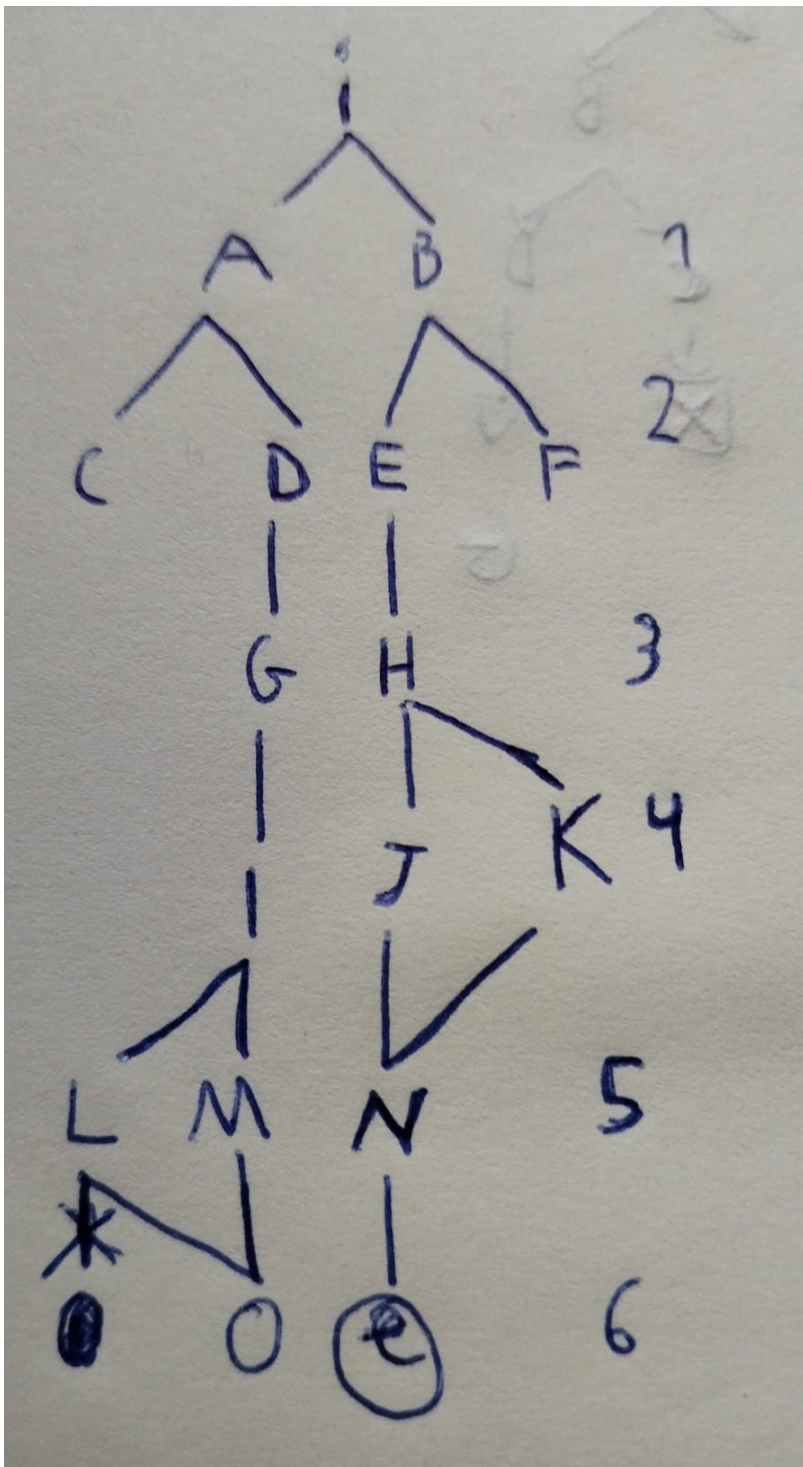 i
A B 1
C D E F 2
G H 3
I J K 4
L M N 5
O e 6